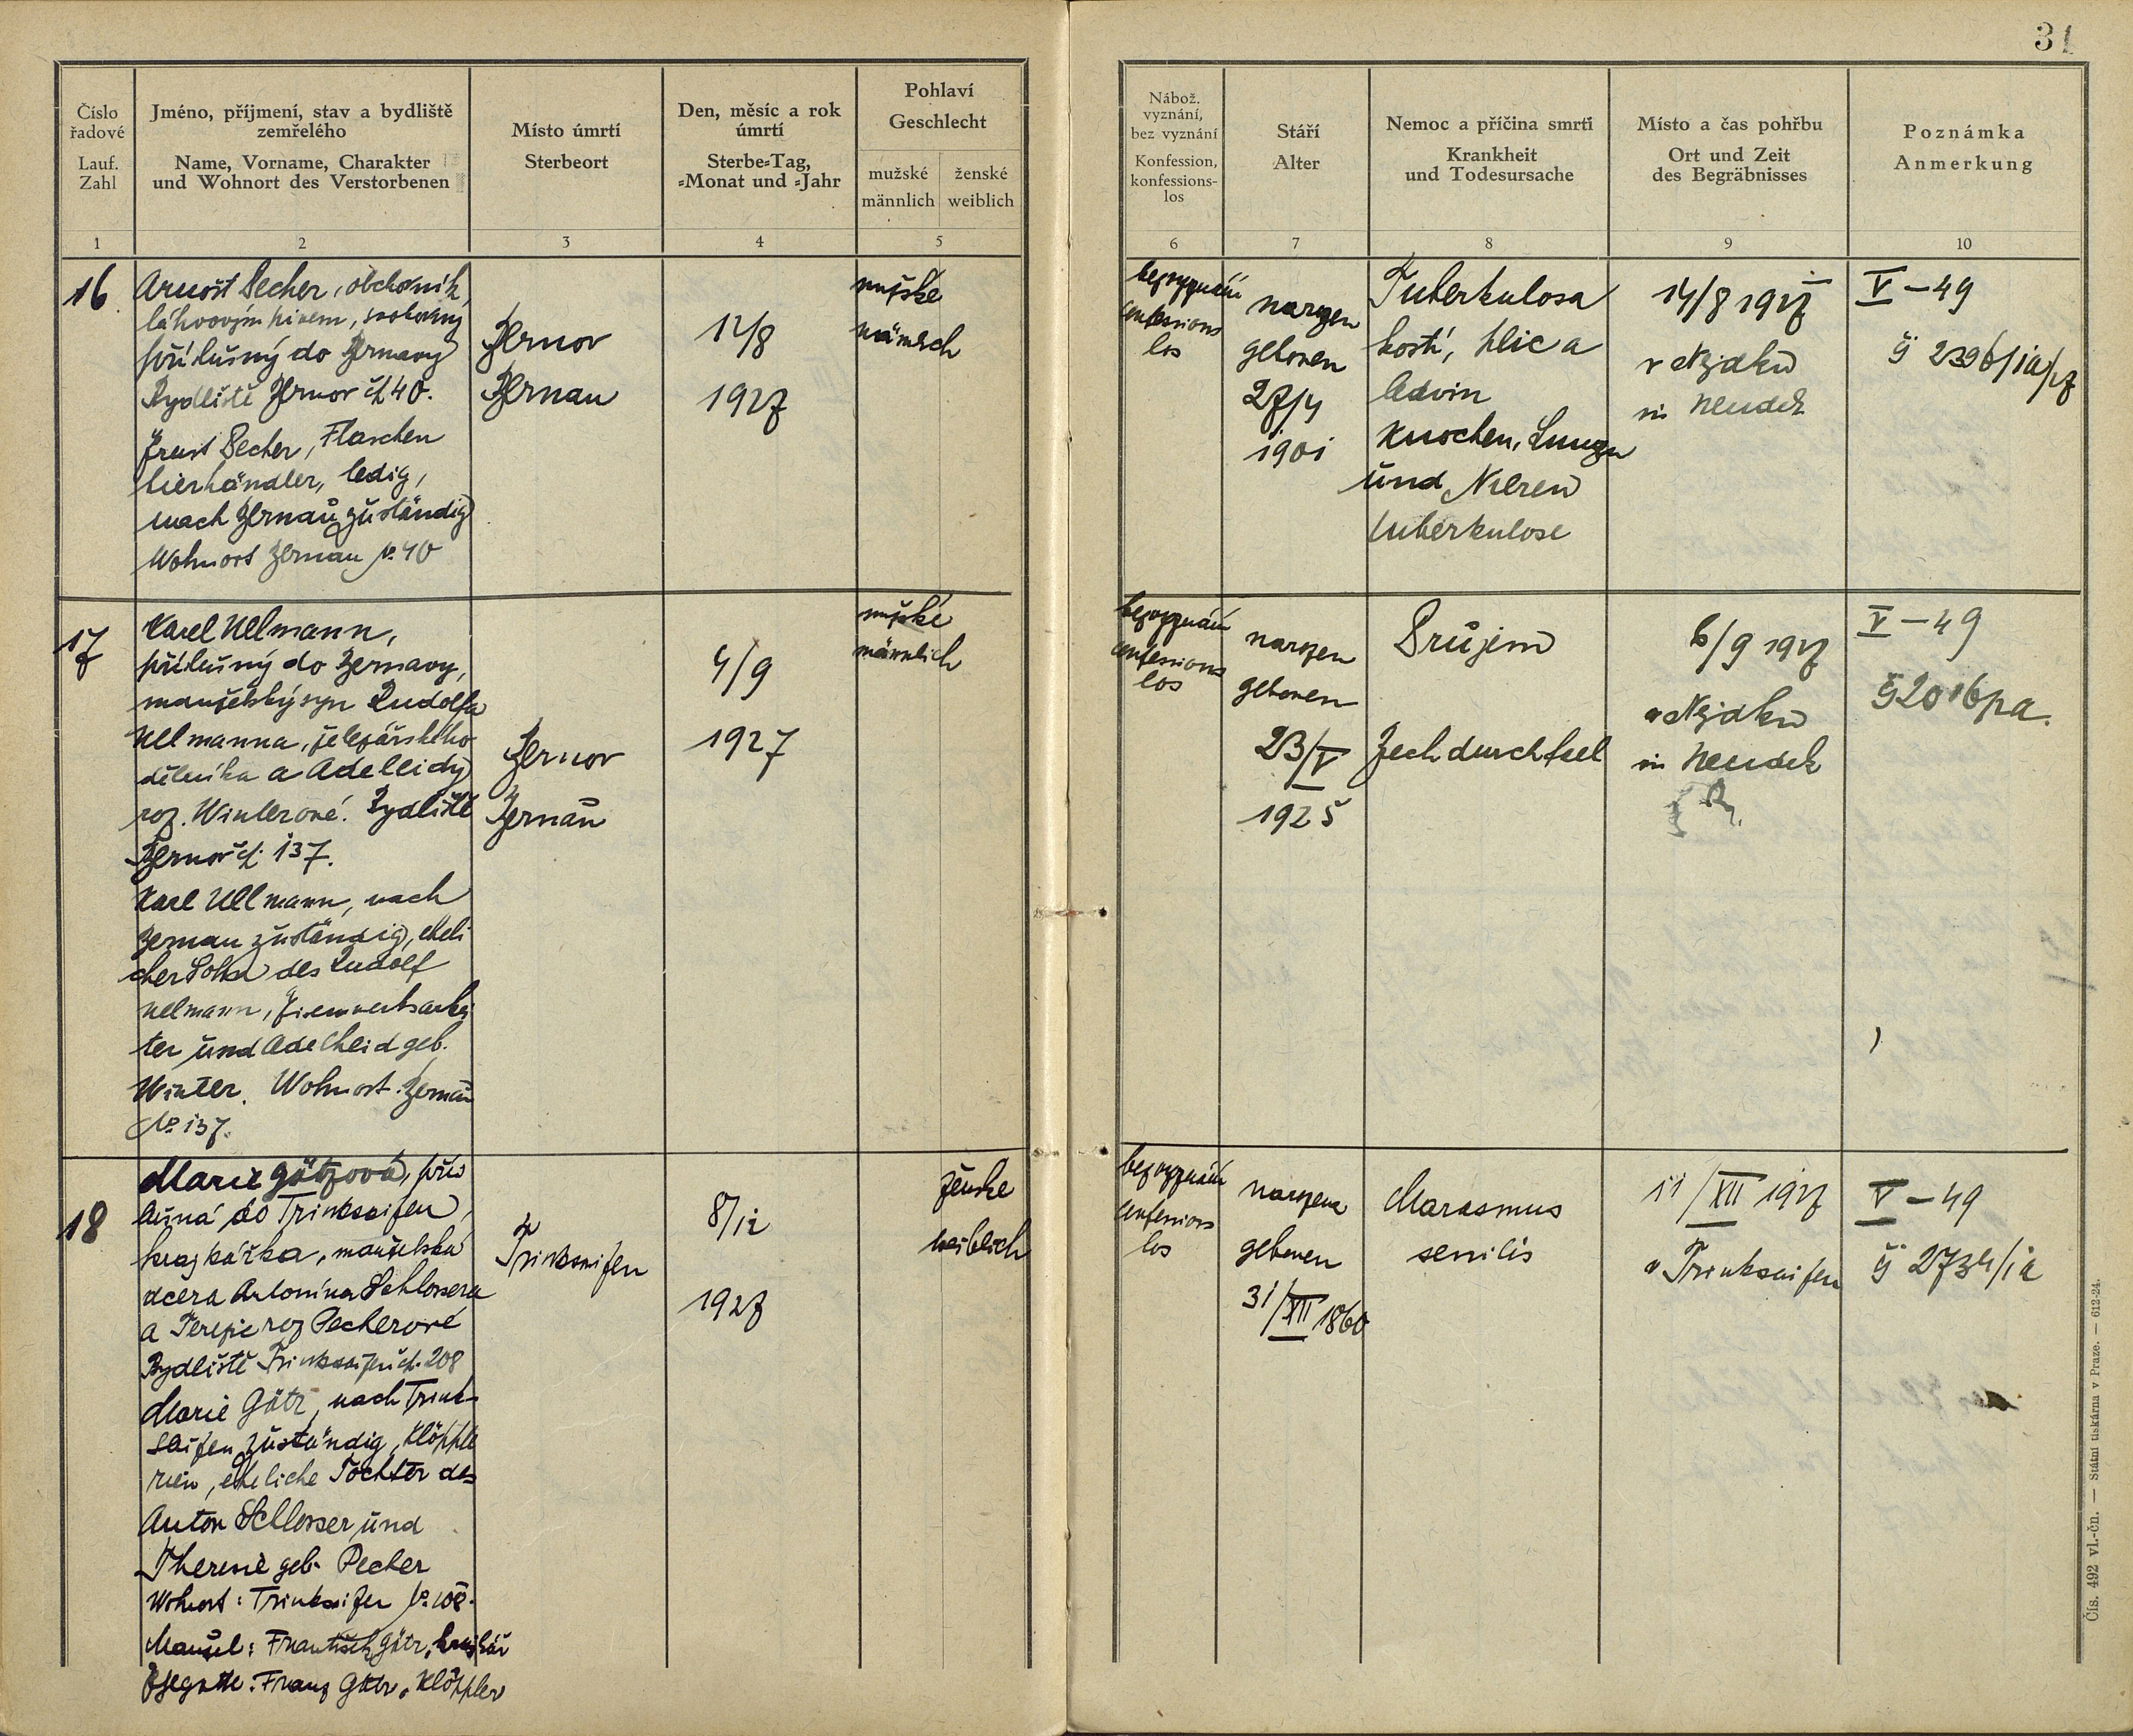 31
Číslo
řadové
Lauf.
Zahl
Jméno, příjmení, stav a bydliště
zemřelého
Name, Vorname, Charakter
und Wohnort des Verstorbenen
Místo úmrtí
Sterbeort
Den, měsíc a rok
úmrtí
Sterbe-Tag,
-Monat und -Jahr
Pohlaví
Geschlecht
mužské
männlich
ženské
weiblich
Nábož.
vyznání,
bez vyznání
Konfession,
konfessions-
los
Stáří
Alter
Nemoc a příčina smrti
Krankheit
und Todesursache
Místo a čas pohřbu
Ort und Zeit
des Begräbnisses
Poznámka
Anmerkung
1
2
3
4
5
6
7
8
9
10
16
Arnošt Pecher, obchodník
láhvovým pivem, svobodný
příslušný do Bernavy
Bydliště Bernov čp. 40.
Ernst Pecher, Flaschen
bierhändler, ledig,
nach Bernau zuständig
Wohnort Bernau No. 40
Bernov
Bernau
12/8
1927
mužské
männlich
bez vyznání
confessions
los
narozen
geboren
27/4
1901
Tuberkulosa
kostí, plic a
ledvin
Knochen, Lungen
und Nieren
tuberkulose
14/8 1927
v Nejdku
in Neudek
V – 49
17
Karel Ullmann,
příslušný do Bernavy,
manželský syn Rudolfa
Ullmanna, železářského
dělníka a Adelleidy
roz. Winterové. Bydliště
Bernov čp. 137.
Karl Ullmann, nach
Bernau zuständig, eheli
cher Sohn des Rudolf
Ullmann, Eisenwerksarbei
ter und Adelheid geb.
Winter. Wohnort Bernau
No 137.
Bernov
Bernau
4/9
1927
mužské
männlich
bez vyznání
confessions
los
narozen
geboren
23/V
1925
Průjem
Brechdurchfall
6/9 1927
v Nejdku
in Neudek
V – 49
18
Marie Götzová, přís
lušná do Trinksaifen,
krajkářka, manželská
dcera Antonína Schlossera
a Terezie roz Pecherové
Bydliště Trinksaifen čp. 208
Marie Götz, nach Trink-
saifen zuständig, Klöpple
rin, eheliche Tochter des
Anton Schlosser und
Theresie geb. Pecher
Wohnort: Trinksaifen No. 208.
Manžel: František Götz, krajkář
Ehegatte: Franz Götz, Klöppler
Trinksaifen
8/12
1927
ženské
weiblich
bez vyznání
confessions
los
narozena
geboren
31/XII 1860
Marasmus
senilis
11/XII 1927
v Trinksaifen
V – 49
Čís. 492 vl.-čn. — Státní tiskárna v Praze. — 612-24.